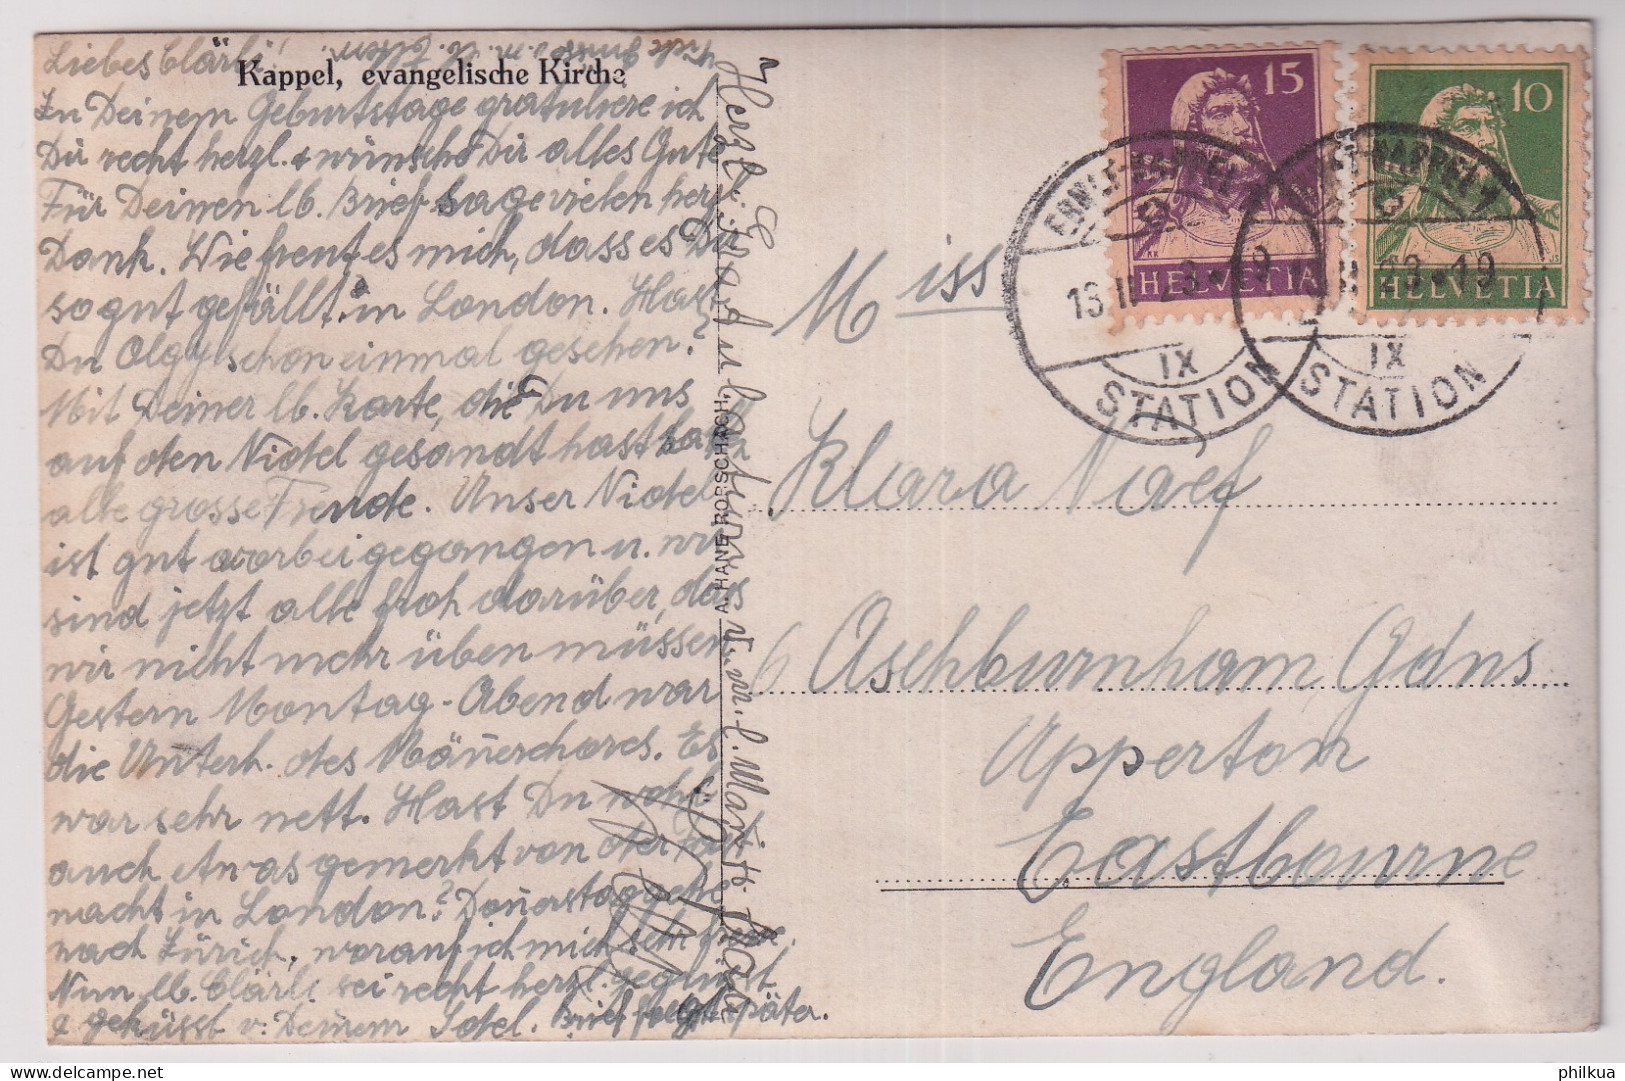 Liebes Clärli,
Kappel, evangelische Kirche
Zu Deinem Geburtstage gratuliere ich
Dir recht herzl. & wünsche Dir alles Gute
Für Deinen lb. Brief sage vielen herz
Dank. Wie freut es mich, dass es Dir
so gut gefällt in London. Hast
Du Olgy schon einmal gesehen?
Mit Deiner lb. Karte, die Du uns
auf den Niotel gesandt hast
alle grosse Freude. Unser Niotel
ist gut vorbei gegangen u. wir
sind jetzt alle froh darüber, dass
wir nicht mehr üben müssen
Gestern Montag-Abend war
die Unterh. des Mänerchores. Es
war sehr nett. Hast Du wohl
auch etwas gemerkt von der
macht in London? Donerstag gehe
nach Zürich, worauf ich mich sehr freue.
Nun lb. Clärli sei recht herzl. gegrüsst
& geküsst v. Deinem Botel. Brief folgt später.
Herzl.
A. HANE RORSCHACH.
15
HELVETIA
10
HELVETIA
EBNAT-KAPPEL
13 II 23 • 19
IX
STATION
EBNAT-KAPPEL
II 23 • 19
IX
STATION
Miss
Klara Naef
6 Aschburnham Gdns
Upperton
Eastbourne
England.
philkua